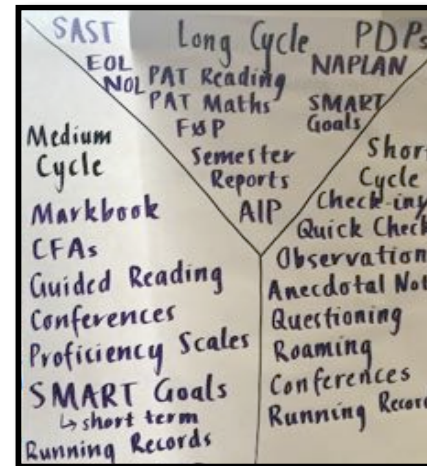 SAST Long Cycle PDPs
EOL NAPLAN
NOL PAT Reading
PAT Maths SMART
Goals
F&P
Semester
Reports
AIP
Medium
Cycle
Markbook
CFAs
Guided Reading
Conferences
Proficiency Scales
SMART Goals
↳ short term
Running Records
Short
Cycle
Check-ins
Quick Check
Observation
Anecdotal Not
Questioning
Roaming
Conferences
Running Recor